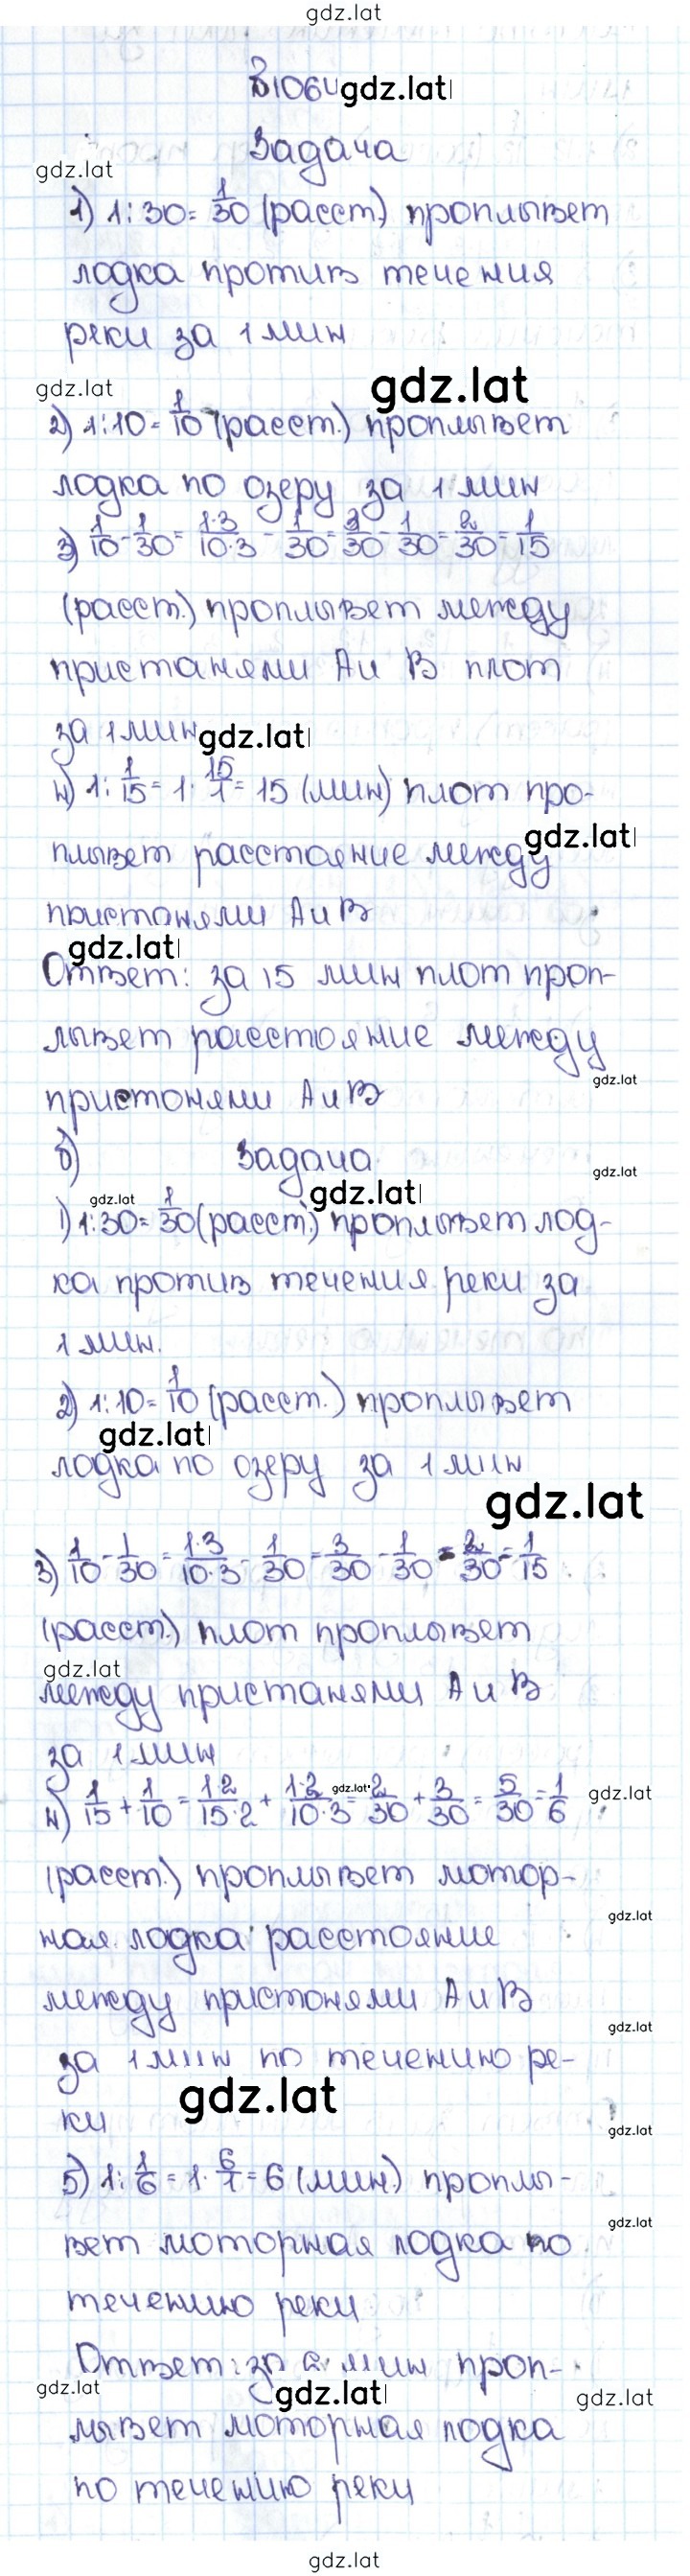 gdz.lat
В1064 gdz.lat
Задача
gdz.lat
1) 1:30=1/30 (расст.) проплывет
лодка против течения
реки за 1 мин
gdz.lat gdz.lat
2) 1:10=1/10 (расст.) проплывет
лодка по озеру за 1 мин
3) 1/10-1/30=1·3/10·3-1/30=3/30-1/30=2/30=1/15
(расст.) проплывет между
пристанями А и В плот
за 1 мин gdz.lat
4) 1:1/15=1·15/1=15 (мин) плот про-
gdz.lat
плывет расстояние между
пристонями А и В
gdz.lat
Ответ: за 15 мин плот проп-
лывет расстояние между
gdz.lat
пристонями А и В
б) Задача
gdz.lat
gdz.lat gdz.lat
1) 1:30=1/30 (расст.) проплывет лод-
ка против течения реки за
1 мин.
2) 1:10=1/10 (расст.) проплывет
gdz.lat
лодка по озеру за 1 мин
gdz.lat
3) 1/10-1/30=1·3/10·3-1/30=3/30-1/30=2/30=1/15
(расст.) плот проплывет
gdz.lat
между пристанями А и В
за 1 мин
4) 1/15+1/10=1·2/15·2+1·3/10·3=2/30+3/30=5/30=1/6
gdz.lat gdz.lat
(расст.) проплывет мотор-
gdz.lat
ная лодка расстояние
между пристонями А и В
gdz.lat
за 1 мин по течению ре-
ки
gdz.lat
gdz.lat
5) 1:1/6=1·6/1=6 (мин.) проплы-
gdz.lat
вет моторная лодка по
течению реки
Ответ: за 6 мин проп-
gdz.lat gdz.lat gdz.lat
лывет моторная лодка
по течению реки
gdz.lat